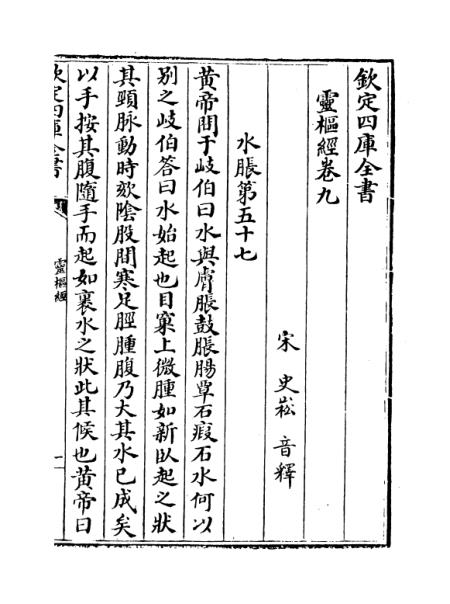 欽定四庫全書
靈樞經卷九
宋 史崧 音釋
水脹第五十七
黃帝問于岐伯曰水與膚脹鼓脹腸覃石瘕石水何以
別之岐伯答曰水始起也目窠上微腫如新臥起之狀
其頸脈動時欬陰股間寒足脛腫腹乃大其水已成矣
以手按其腹隨手而起如裹水之狀此其候也黃帝曰
欽定四庫全書
靈樞經
一